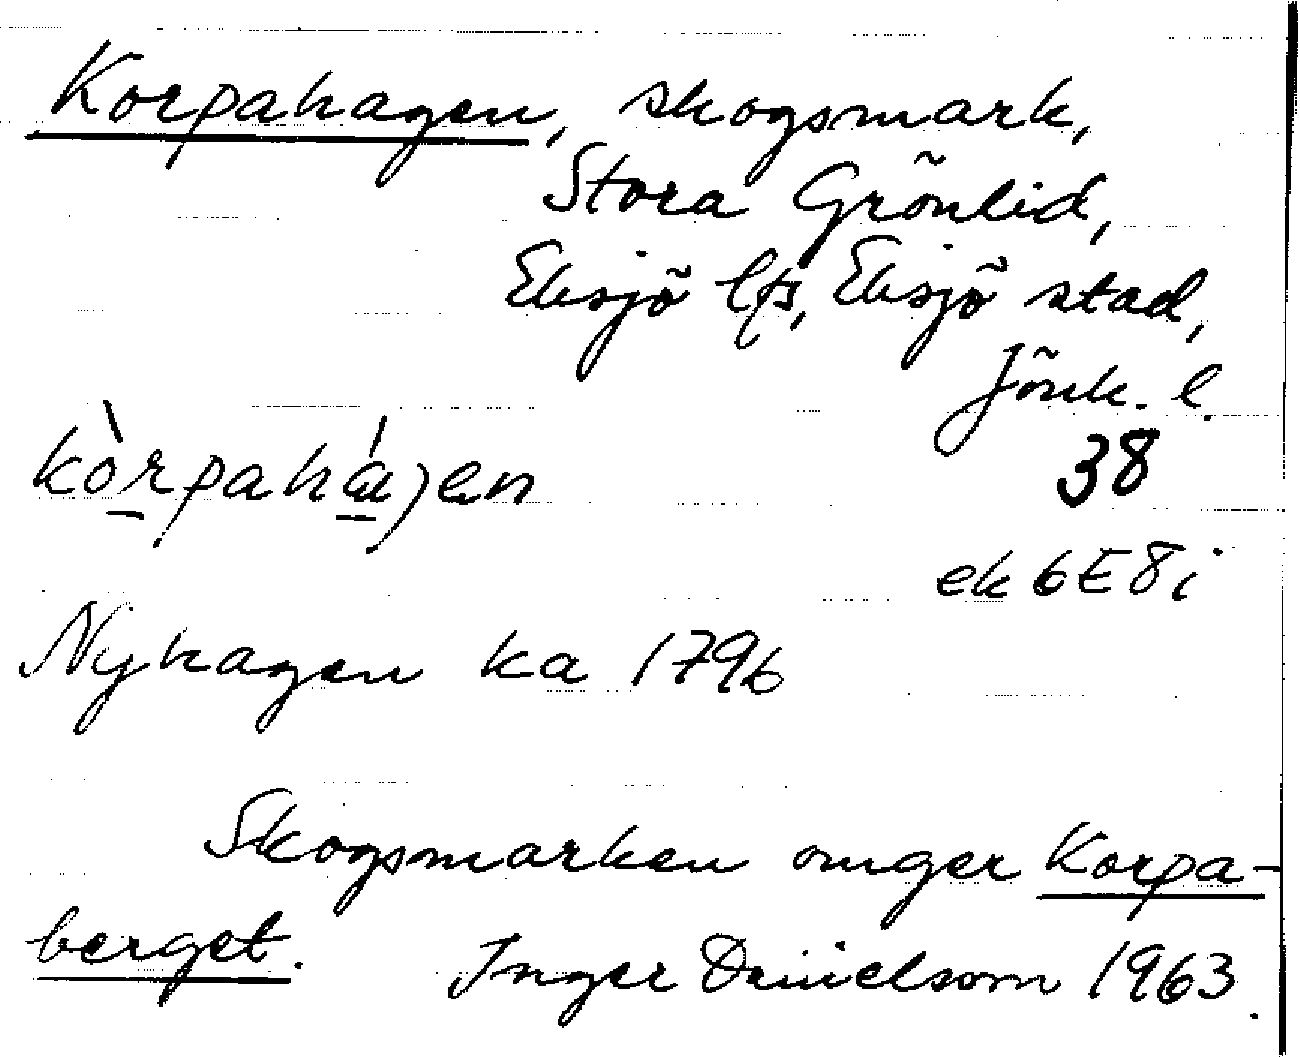 Korpahagen, skogsmark,
Stora Grönlid,
Eksjö lfs, Eksjö stad,
Jönk. l.
kòrpahájen
38
ek 6E8i
Nyhagen ka 1796
Skogsmarken omger Korpa-
berget.
Inger Danielsson 1963.